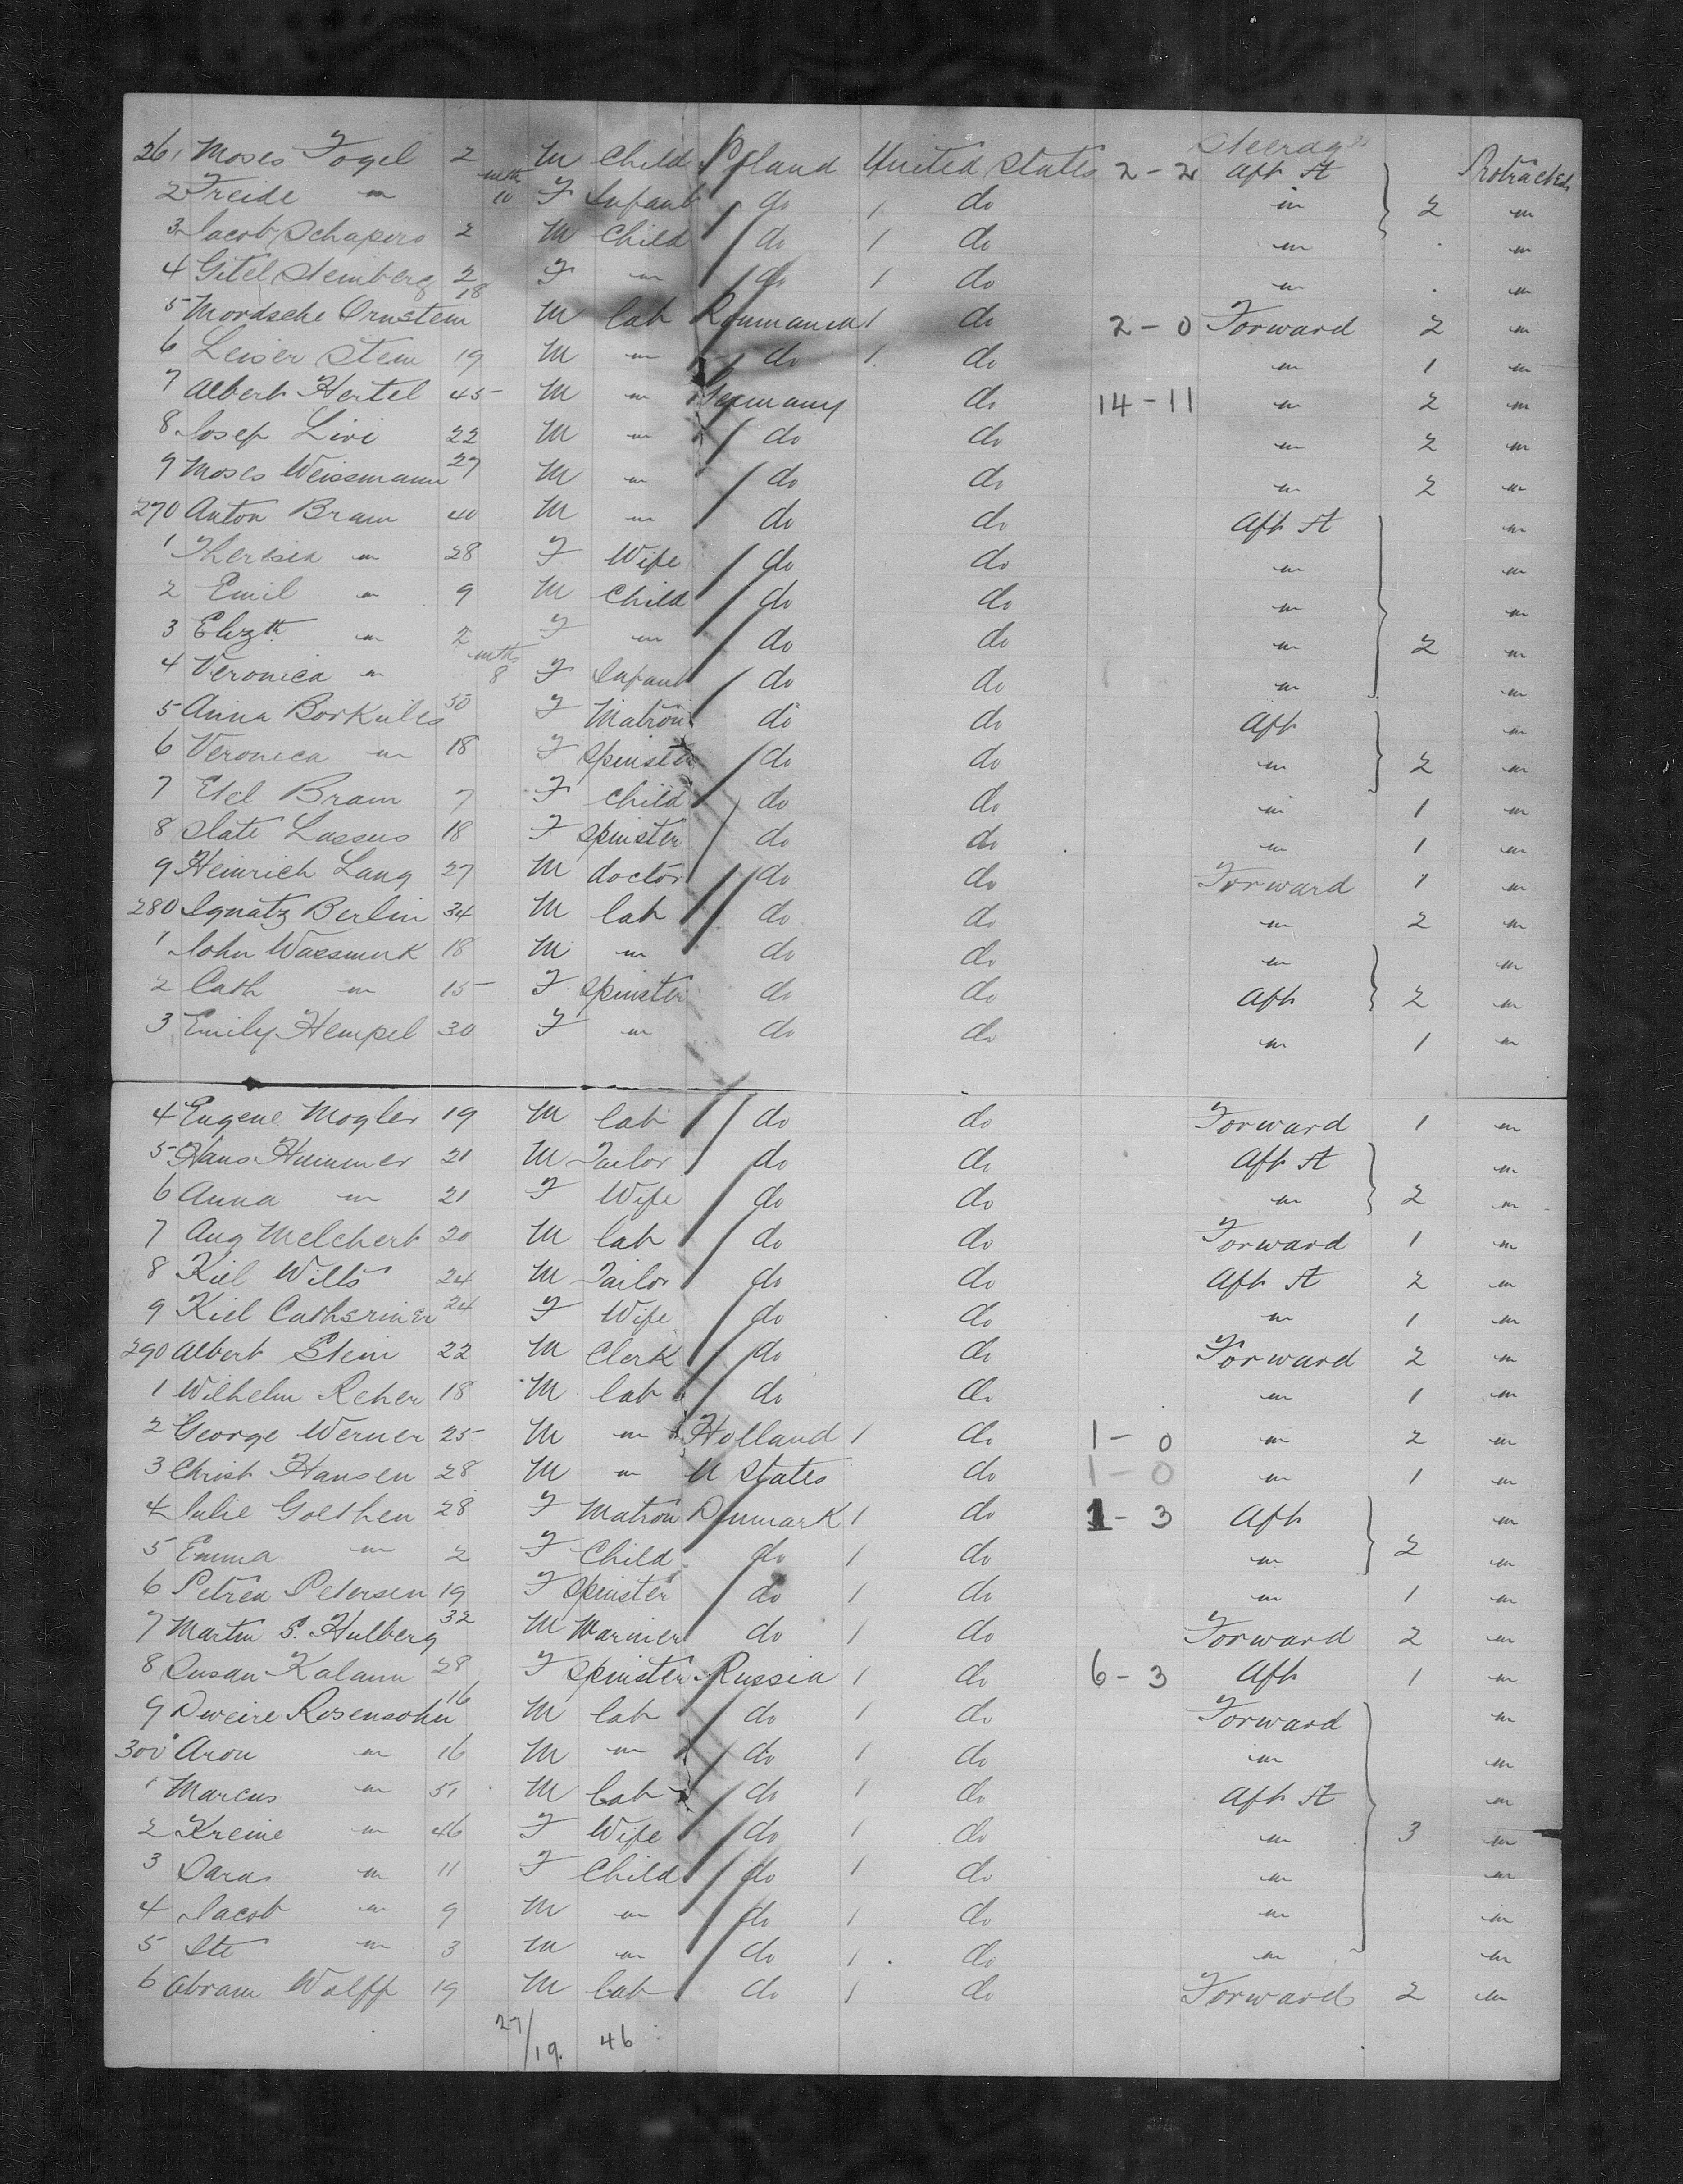 Steerage
261 Moses Fogel 2 M Child Poland United States 2-2 Aft St Protracted
2 Freide " mths 10 F Infant do 1 do " 2 "
3 Jacob Schapiro 2 M Child do 1 do " "
4 Gitel Steinberg 2 F " do 1 do " "
5 Mordsche Ornstein 18 M lab Roumania 1 do 2-0 Forward 2 "
6 Leiser Stein 19 M " do 1 do " 1 "
7 Albert Hertel 45 M " Germany do 14-11 " 2 "
8 Josef Livi 22 M " do do " 2 "
9 Moses Weissmann 27 M " do do " 2 "
270 Anton Bram 40 M " do do Aft St "
1 Theresia " 28 F Wife do do " "
2 Emil " 9 M Child do do " "
3 Elizth " 2 F " do do " 2 "
4 Veronica " mths 8 F Infant do do " "
5 Anna Borkules 50 F Matron do do Aft "
6 Veronica " 18 F Spinster do do " 2 "
7 Etel Bram 7 F Child do do " 1 "
8 Slate Lassus 18 F Spinster do do " 1 "
9 Heinrich Lang 27 M doctor do do Forward 1 "
280 Ignatz Berlin 34 M lab do do " 2 "
1 John Wassmuk 18 M " do do " "
2 Cath " 15 F Spinster do do Aft 2 "
3 Emily Hempel 30 F " do do " 1 "
4 Eugene Mogler 19 M lab do do Forward 1 "
5 Hans Hummer 21 M Tailor do do Aft St "
6 Anna " 21 F Wife do do " 2 "
7 Aug Melchert 20 M lab do do Forward 1 "
8 Kiel Wilts 24 M Tailor do do Aft St 2 "
9 Kiel Catherine 24 F Wife do do " 1 "
290 Albert Stein 22 M Clerk do do Forward 2 "
1 Wilhelm Reher 18 M lab do do " 1 "
2 George Werner 25 M " Holland 1 do 1-0 " 2 "
3 Christ Hansen 28 M " U States do 1-0 " 1 "
4 Julie Golthen 28 F Matron Denmark 1 do 1-3 Aft "
5 Emma " 2 F Child do 1 do " 2 "
6 Petrea Petersen 19 F Spinster do 1 do " 1 "
7 Martin S. Hulberg 32 M Mariner do 1 do Forward 2 "
8 Susan Kalann 28 F Spinster Russia 1 do 6-3 Aft 1 "
9 Dweire Rosensohn 16 M lab do 1 do Forward "
300 Aron " 16 M " do 1 do " "
1 Marcus " 51 M lab do 1 do Aft St "
2 Kreine " 46 F Wife do 1 do " 3 "
3 Sara " 11 F Child do 1 do " "
4 Jacob " 9 M " do 1 do " "
5 Ite " 3 M " do 1 do " "
6 Abram Wolff 19 M lab do 1 do Forward 2 "
27/19. 46